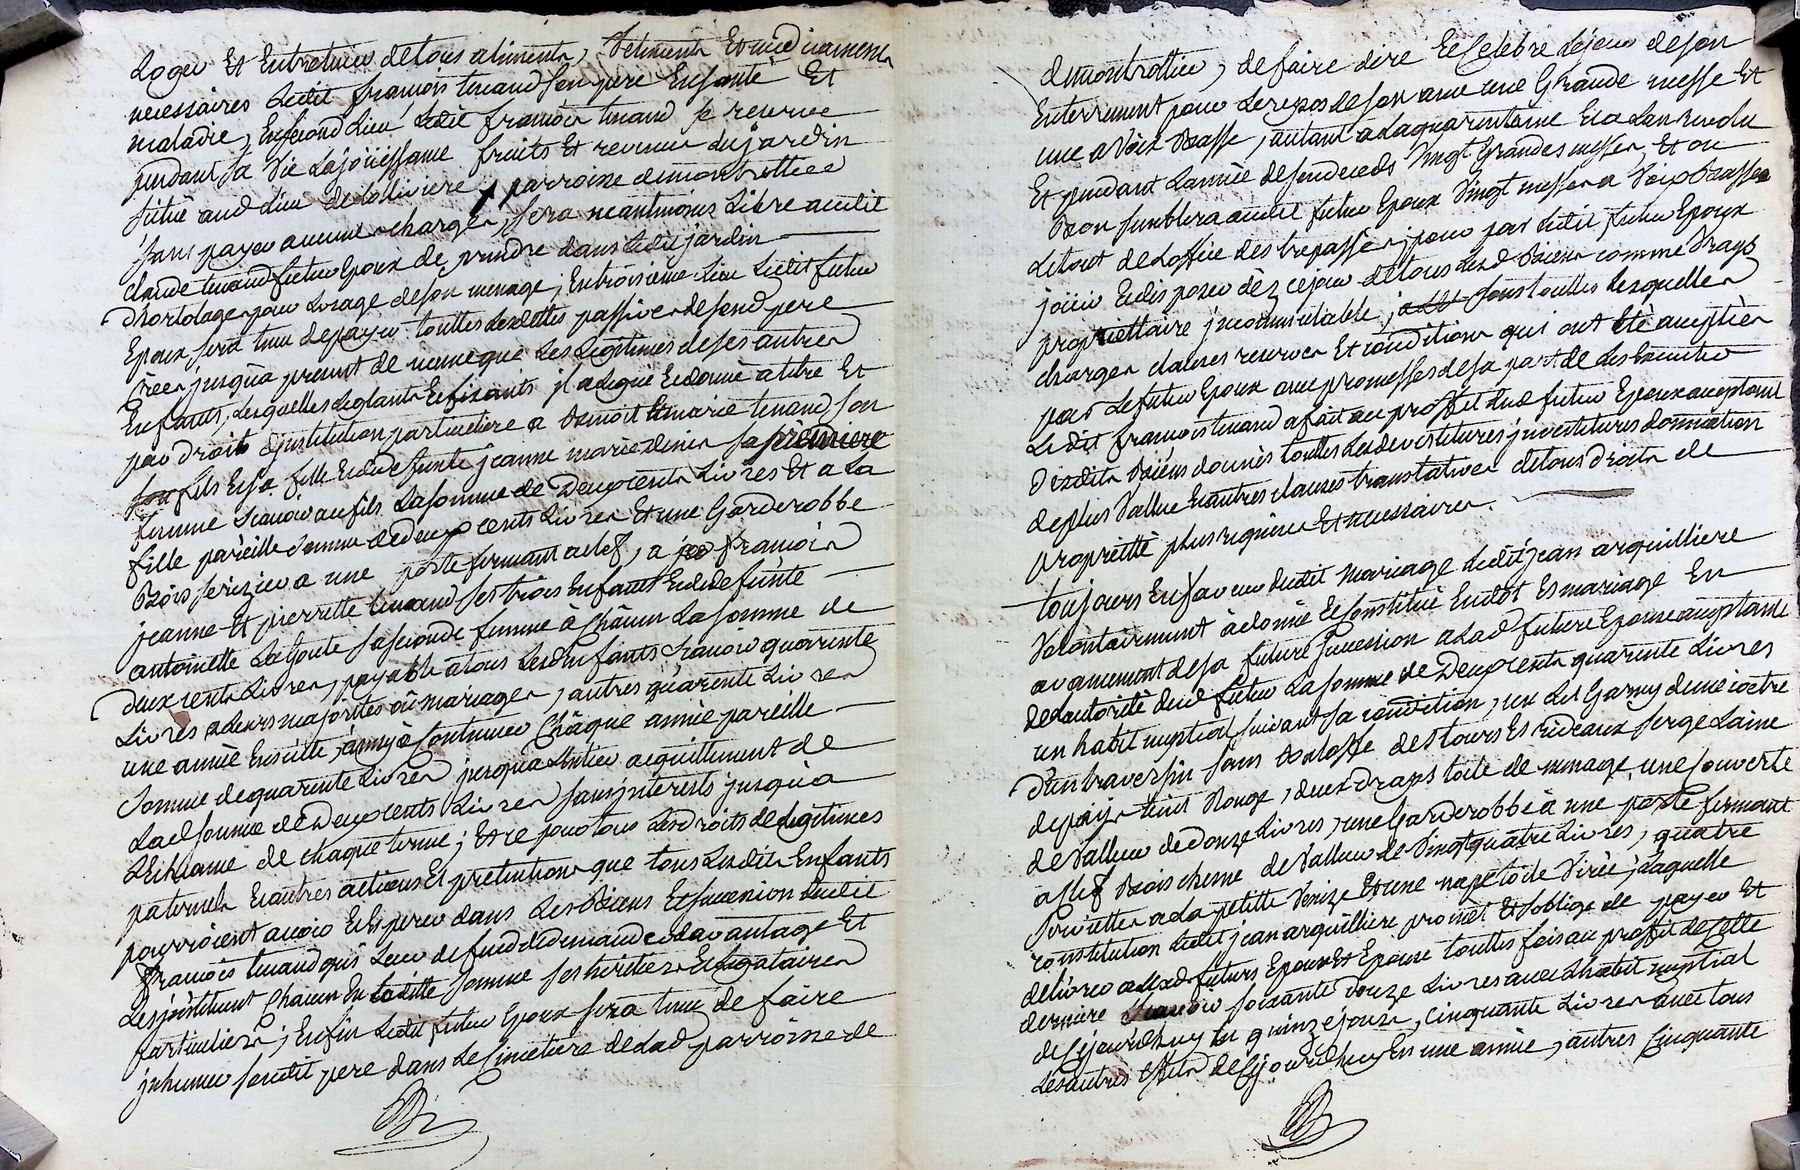 Loger Et Entretenir de tous aliments, Vetements Et medicaments
necessaires Ledit francois tenaud son pere En santé Et
maladie, En second Lieu Ledit francois tenaud se reserve
pendant sa Vie La joüissance fruits Et revenus du jardin
situé aud Lieu de parroisse de montrottier
sans payer aucunes charges, sera neantmoins Libre audit
claude tenaud futur Epoux de prendre dans Ledit jardin
D'hortolages pour Lusage de son menage; En troisieme Lieu Ledit futur
Epoux sera tenu de payer touttes Les dettes passives de sond pere
Créés jusqu'a present de meme que Les Legitimes de ses autres
Enfants, Lesquelles Reglant Et fixants il a Legué Et donné a titre Et
par droit d'institution particuliere a Benoit Et marie tenaud son
fils Et sa fille Et de defunte jeanne marie denis sa premiere
femme scavoir au fils La somme de Deux cents Livres Et a La
fille pareille somme de deux cents Livres Et une Garderobbe
Bois serizier a une porte fermant a clef, a francois
jeanne Et pierrette tenaud ses trois Enfants Et de defunte
antoinette La Goute sa seconde femme à Châcun La somme de
deux cents Livres, payable a tous Lesd Enfants scavoir quarente
Livres a Leurs majorités ou mariages, autres quarente Livres
une année Ensuitte, ainsy a Continuer Châque année pareille
somme de quarente Livres jusqua Lentier acquittement de
Lad somme de Deux cents Livres sans interests jusqu'a
Lecheance de chaque terme; Et ce pour tous Les droits de Legitimes
paternels Et autres actions Et pretentions que tous Lesdits Enfants
pourroient avoir Et Esperer dans Les Biens Et succession dudit
francois tenaud qui Leur defend de demander davantage Et
Les institüent Chacun En Laditte somme ses heritiers Et Legataires
particuliers; Enfin Ledit futur Epoux sera tenu de faire
inhumer sondit pere dans Le Cimetiere de Lad parroisse de
demontrottier, de faire dire Et Celebrer Lejour de son
Enterrement pour Le repos de son ame une Grande messe Et
une a Voix Basse, autant a La quarentaine Et a Lan revolu
Et pendant Lannée de son deceds Vingt Grandes messes, Et ou
Bon semblera audit futur Epoux Vingt messes a Voix Basses
Le tout de Loffice des trepassés; pour par Ledit futur Epoux
joüir Et disposer dèz cejour de tous Lesd Biens comme Vrays
proprieттaire incommutable; sous touttes Lesquelles
charges clauses reserves Et conditions qui ont Eté acceptées
par Le futur Epoux avec promesses de sa part de Les Executer
Ledit francois tenaud a fait au proffit dud futur Epoux acceptant
Desdits Biens donnés touttes Les devestitures investitures donnation
de plus Vallue Et autres clauses translatives de tous droits de
proprietté plus requises Et necessaires.
toujours En faveur dudit Mariage Ledit jean arquilliere
Volontairement à donné Et Constitué En dot Et mariage En
avancement de sa future succession a Lad future Epouse acceptante
de Lautorité dud futur La somme de Deux cents quarente Livres
un habit nuptial suivant sa condition, un Lit Garny d'une coëtre
D'un traversin sans Baloffe des tours Et rideaux serge Laine
de pays teint Rouge, deux draps toile de menage, une Couverte
de Valleur de Douze Livres, une Garderobbe à une porte fermant
a clef Bois chesne de Valleur de Vingt quatre Livres, quatre
serviettes a La petitte Venize Et une nape toile Virée; Laquelle
constitution Ledit jean arquilliere promet Et soblige de payer Et
delivrer auxd futurs Epoux Et Epouse touttes fois au proffit de Cette
derniere scavoir soixante douze Livres avec Lhabit nuptial
de Cejourdhuy En quinze jours, Cinquante Livres avec tous
Les autres Effets de Cejourdhuy En une année, autres Cinquante